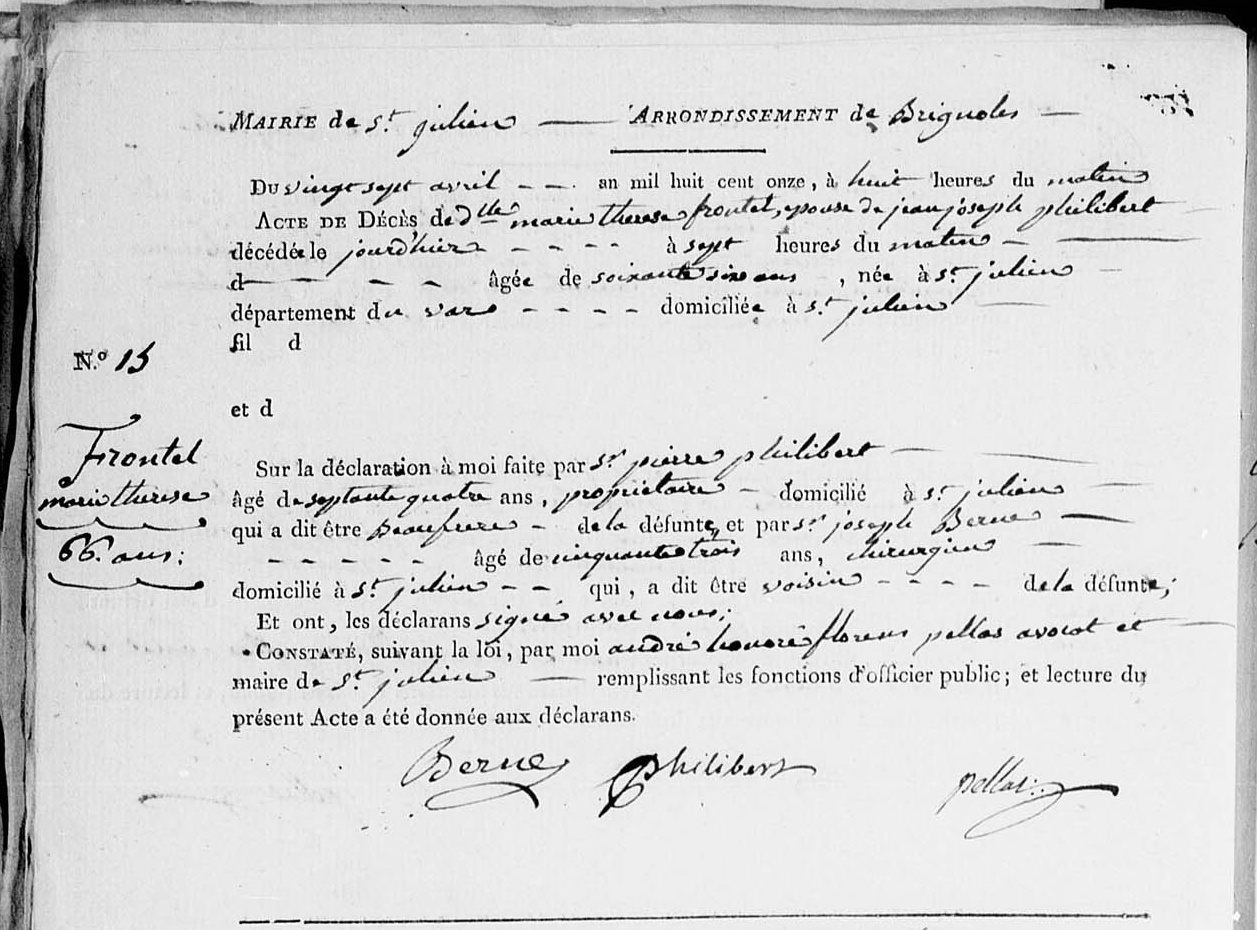 MAIRIE de St julien — ARRONDISSEMENT de Brignoles —
DU vingt sept avril - - - an mil huit cent onze, à huit heures du matin
ACTE DE DÉCÈS de Dlle marie therese frontel, epouse de jean joseph philibert
décédée le jourd'hier - - - - à sept heures du matin —
d — - - - âgée de soixante six ans, née à St julien —
département du var - - - - domiciliée à St julien —
fil d
N.º 15
et d
Frontel
marie therese
66. ans:
Sur la déclaration à moi faite par Sr pierre philibert —
âgé de septante quatre ans, propriétaire - domicilié à St julien —
qui a dit être Beaufrere - de la défunte, et par Sr joseph Berne —
- - - - - âgé de cinquante trois ans, chirurgien —
domicilié à St julien - - qui, a dit être voisin - - - - de la défunte;
Et ont, les déclarans signé avec nous;
CONSTATÉ, suivant la loi, par moi andré honoré florens pellas avocat et
maire de St julien — remplissant les fonctions d'officier public; et lecture du
présent Acte a été donnée aux déclarans.
Berne philibert pellas